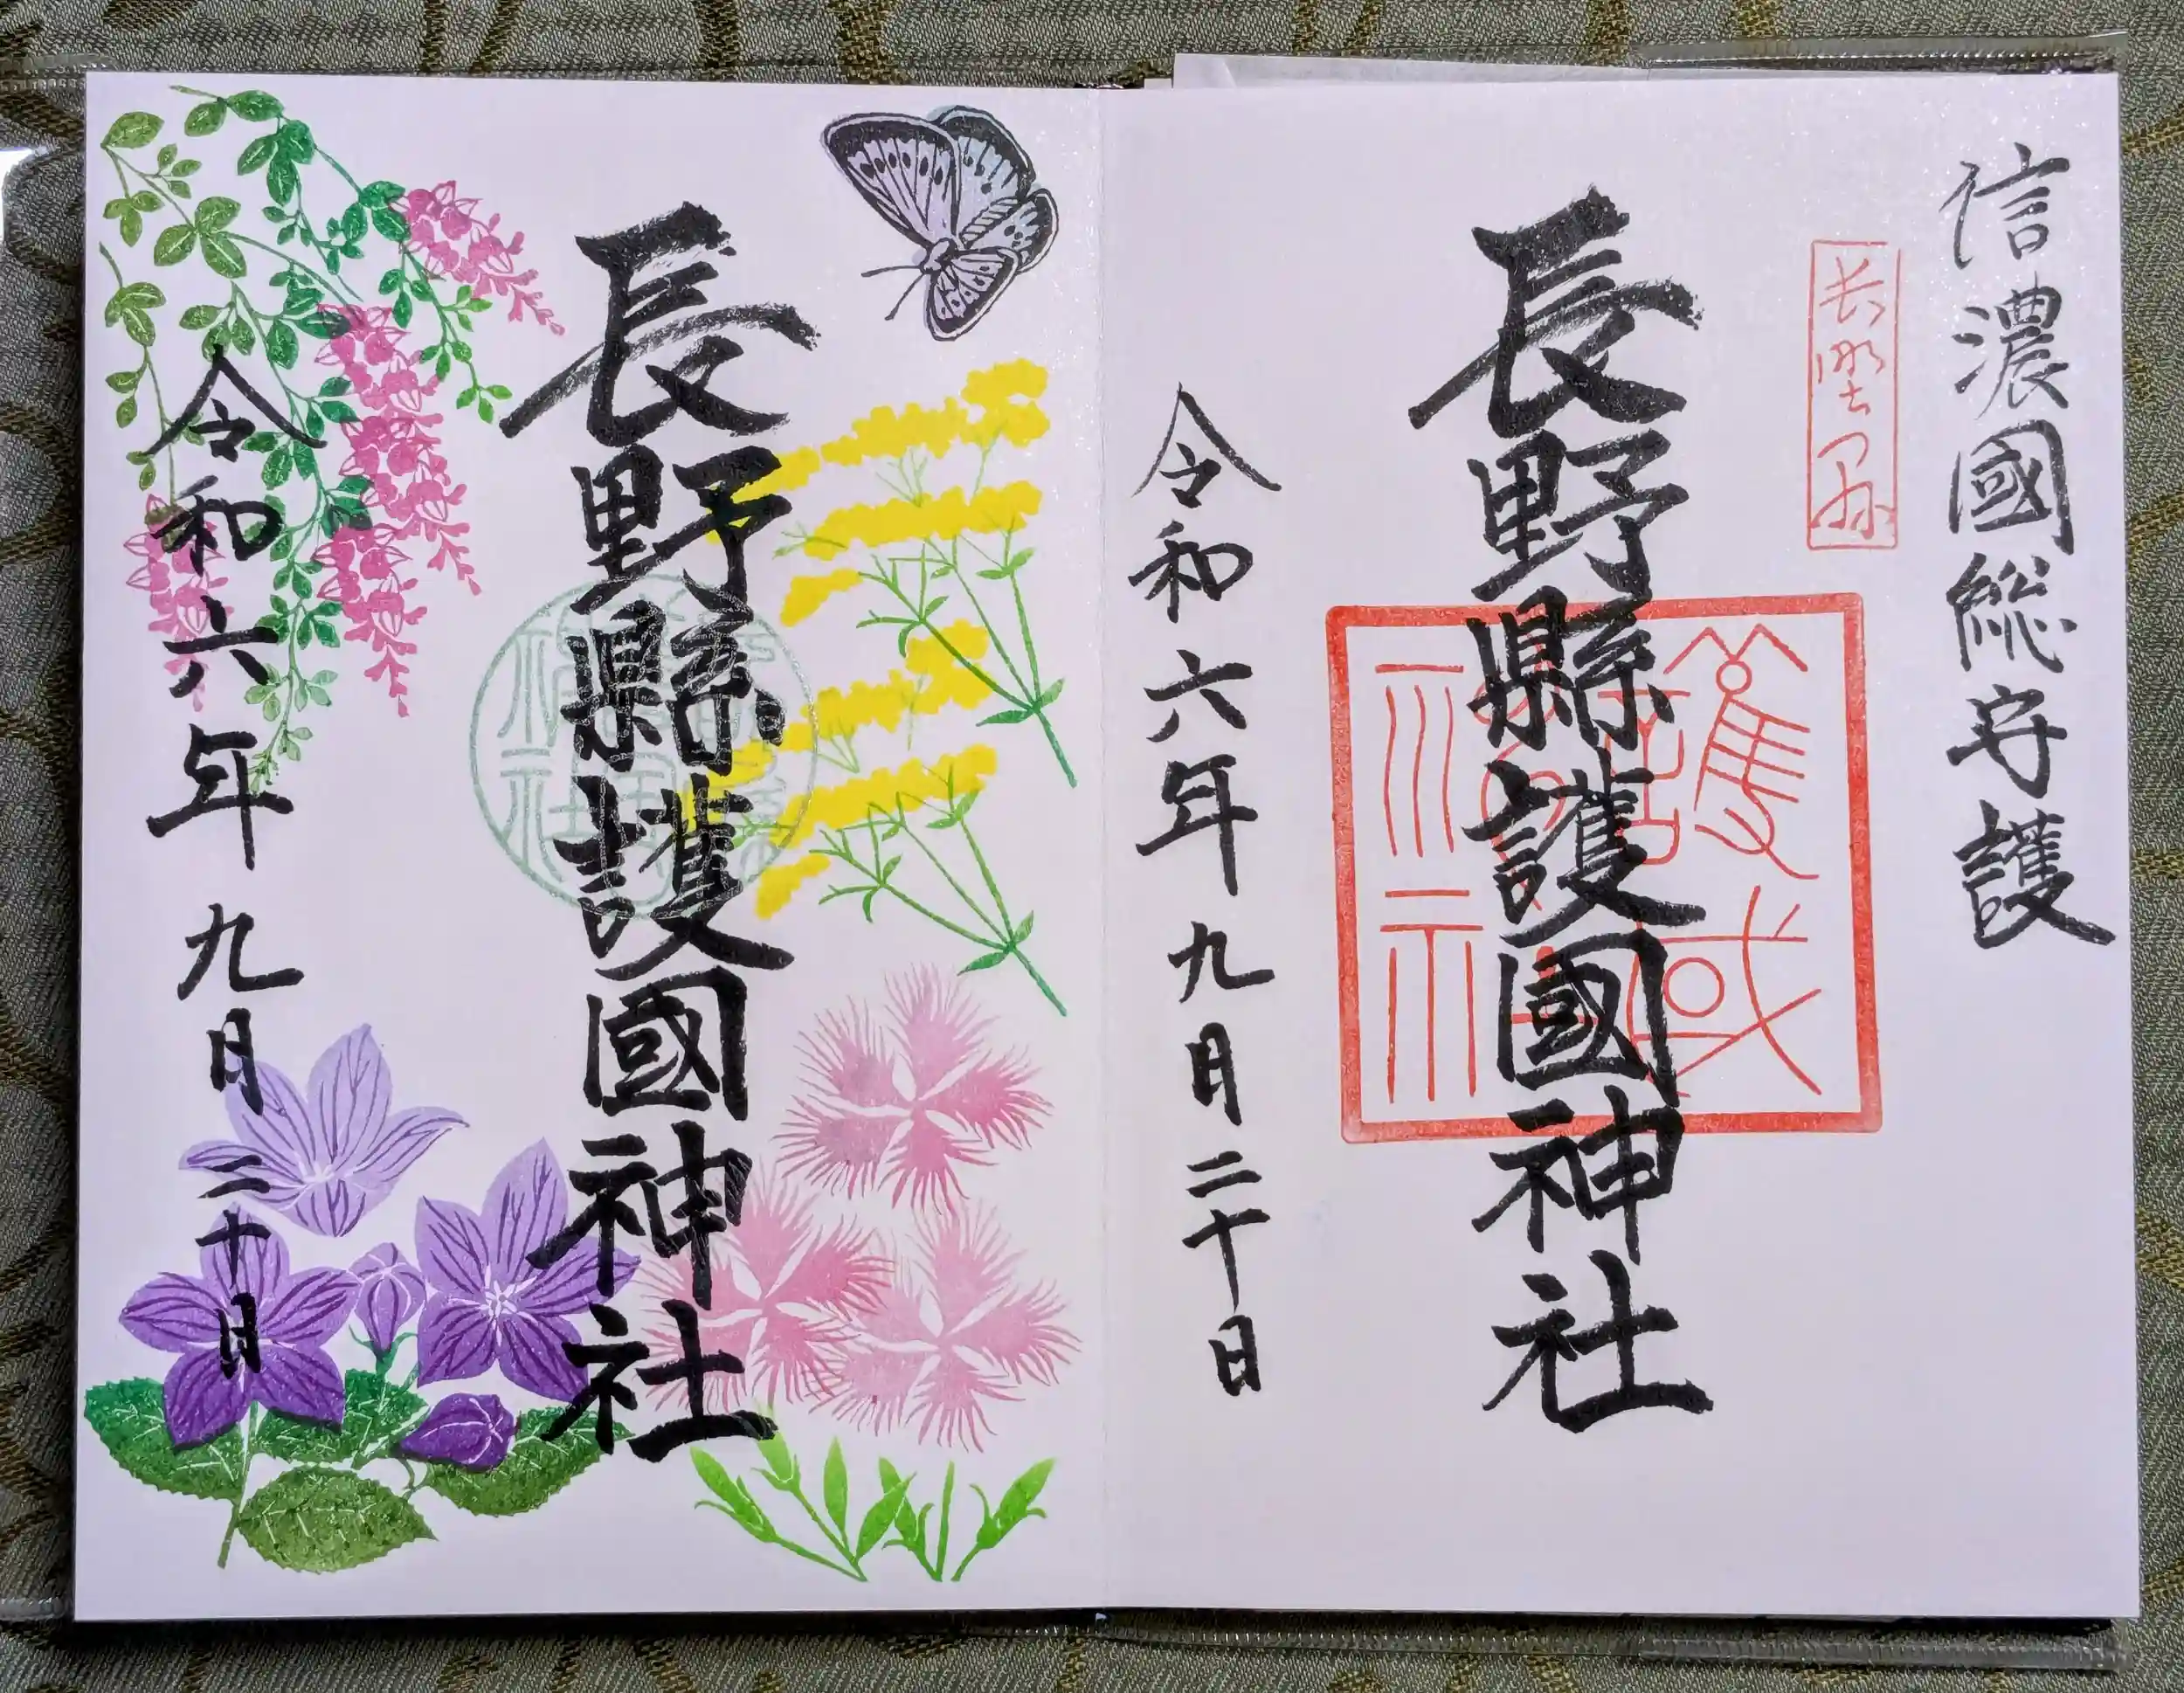 信濃國総守護
長野縣
長野縣護國神社
令和六年九月二十日
長野縣護國神社
令和六年九月二十日